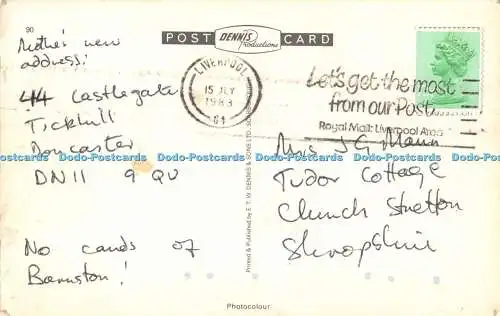 90
POST DENNIS Productions CARD
Mother's new
address:
44 Castlegate
Tickhill
Doncaster
DN11 9 QU
No cards of
Barnston!
LIVERPOOL
15 JLY
1983
Let's get the most
from our Post
Royal Mail: Liverpool Area
Mrs J G Mann
Tudor Cottage
Church Stretton
Shropshire
Printed & Published by E. T. W. DENNIS & SONS LTD.
Photocolour
Dodo-Postcards Dodo-Postcards Dodo-Postcards Dodo-Postcards Dodo-Postcards Dodo-Postcards